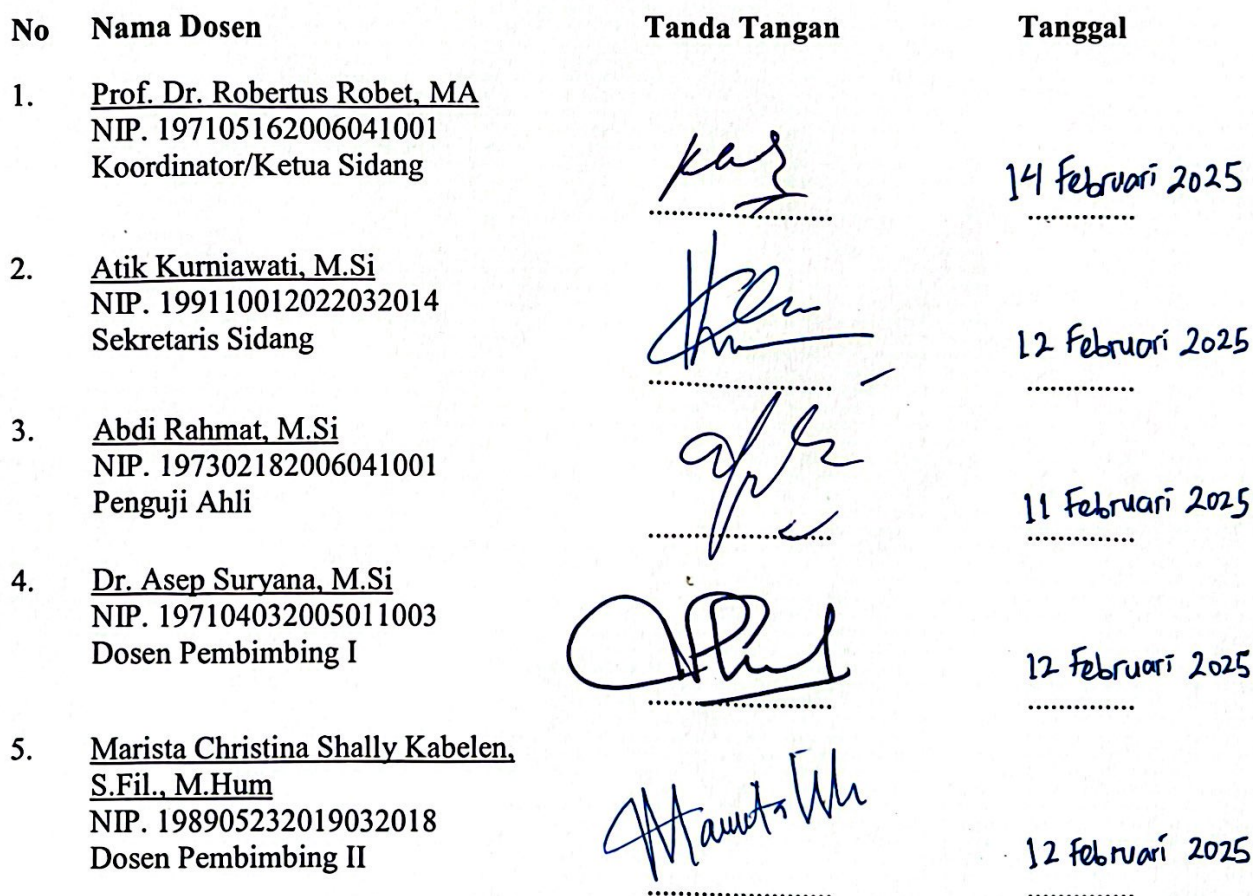 No Nama Dosen Tanda Tangan Tanggal
1. Prof. Dr. Robertus Robet, MA
NIP. 197105162006041001
Koordinator/Ketua Sidang
14 Februari 2025
2. Atik Kurniawati, M.Si
NIP. 199110012022032014
Sekretaris Sidang
12 Februari 2025
3. Abdi Rahmat, M.Si
NIP. 197302182006041001
Penguji Ahli
11 Februari 2025
4. Dr. Asep Suryana, M.Si
NIP. 197104032005011003
Dosen Pembimbing I
12 Februari 2025
5. Marista Christina Shally Kabelen,
S.Fil., M.Hum
NIP. 198905232019032018
Dosen Pembimbing II
12 Februari 2025